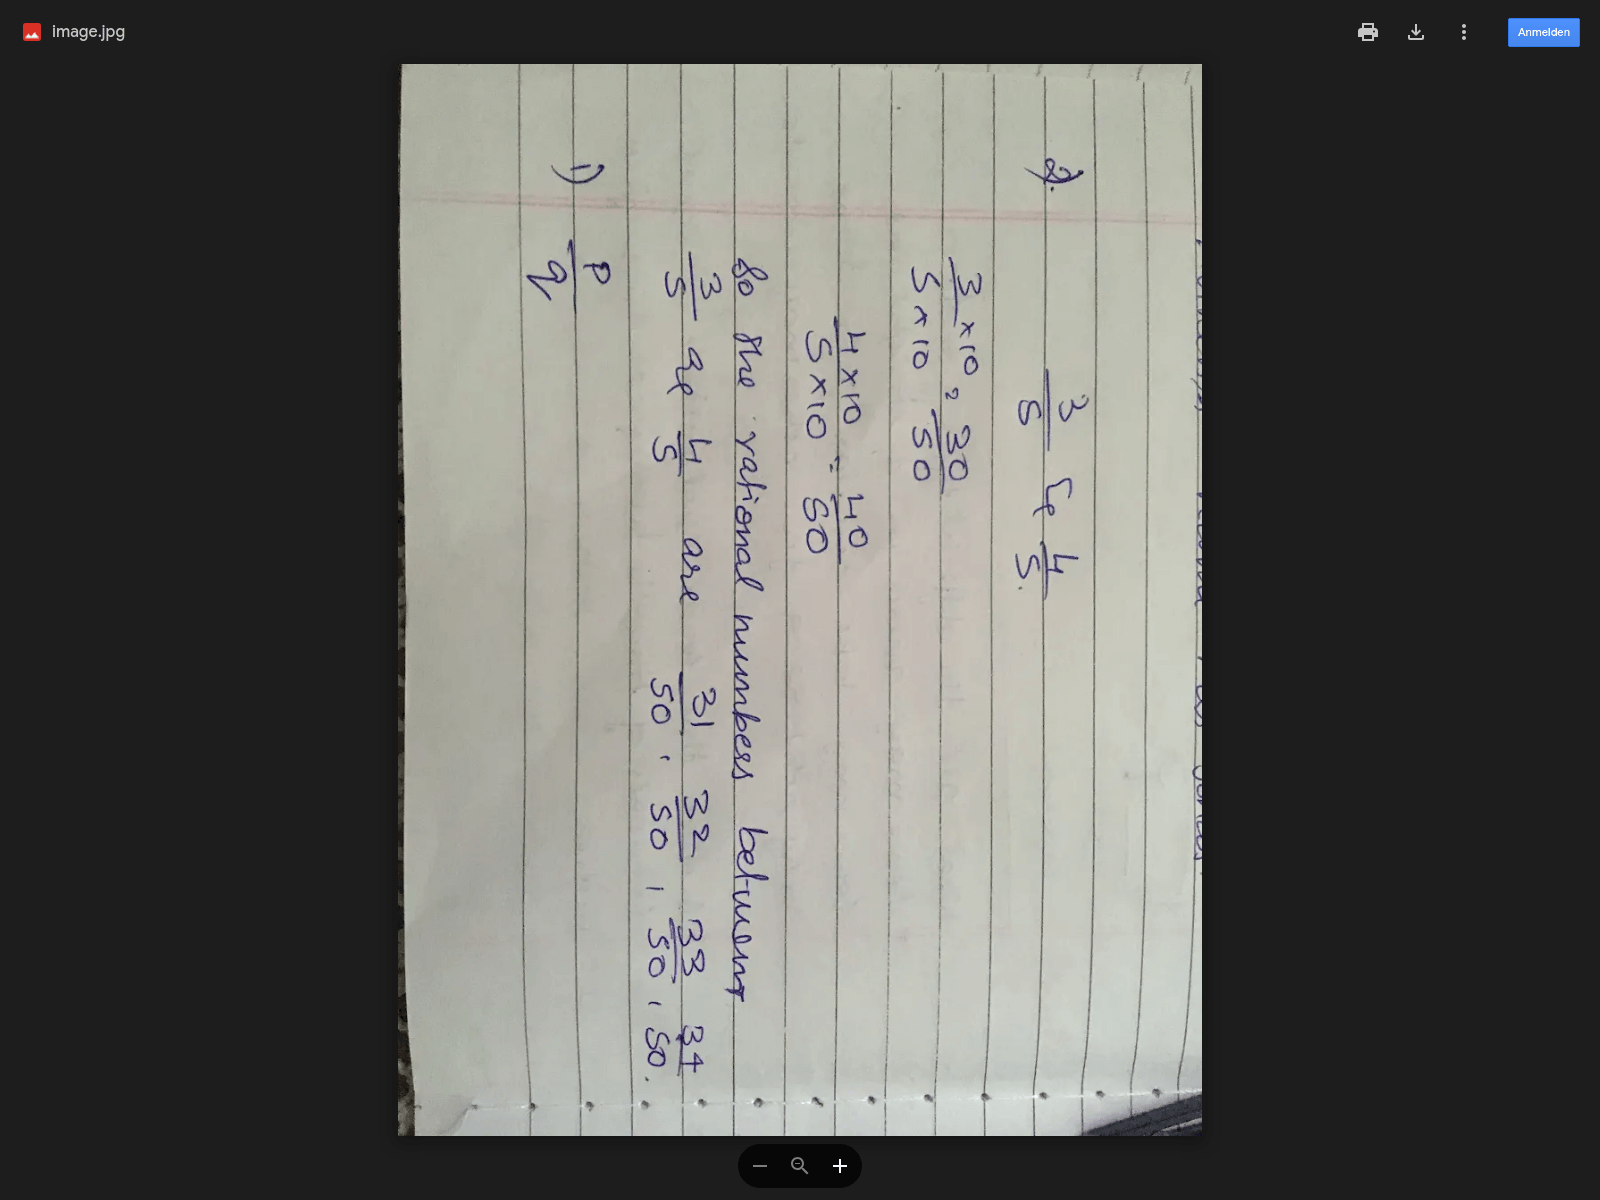 image.jpg
Anmelden
2).
3/5 & 4/5.
3×10/5×10 = 30/50
4×10/5×10 = 40/50
So the rational numbers between
3/5 & 4/5 are 31/50, 32/50, 33/50, 34/50.
1) p/q